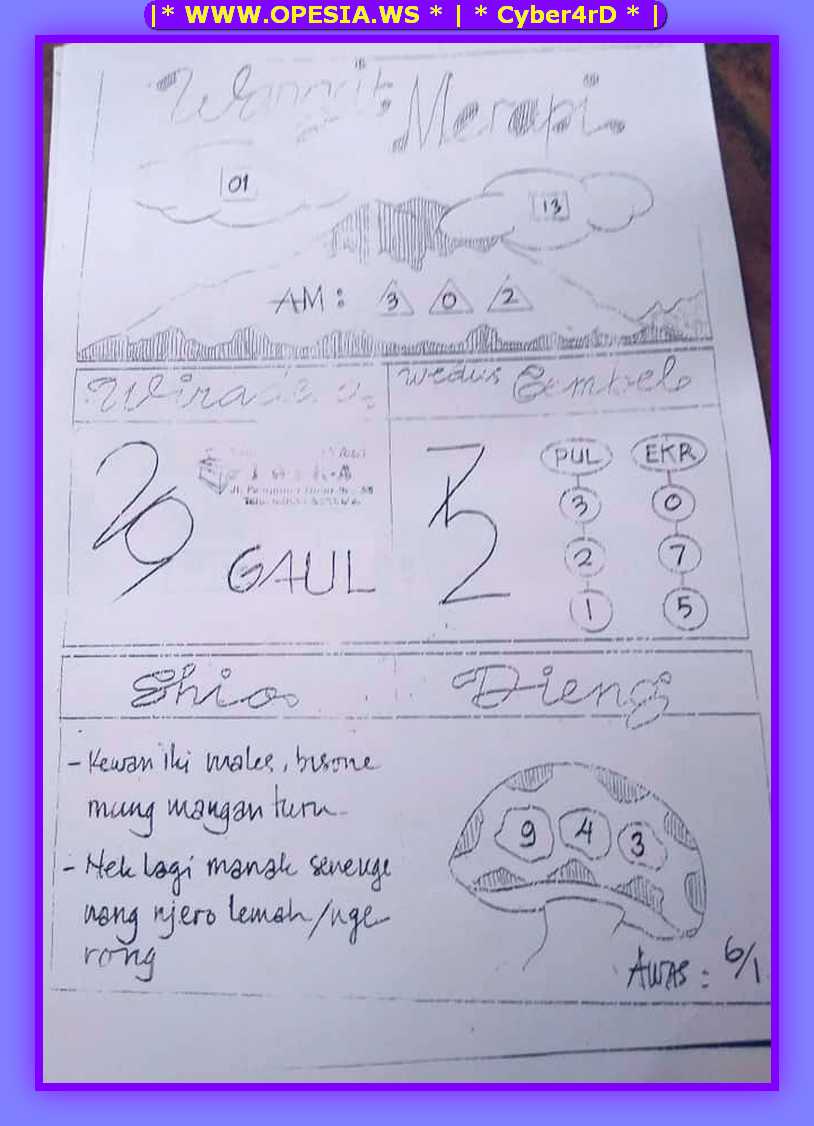 |* WWW.OPESIA.WS * | * Cyber4rD * |
Wangsit Merapi
01
13
AM : 3 0 2
Wedus Gembel
29
GAUL
7
2
PUL EKR
3 0
2 7
1 5
Shio Dieng
- Kewan iki males, bisone
mung mangan turu
- Nek lagi manak senenge
nang njero lemah/nge
rong
9 4 3
AWAS : 6/1